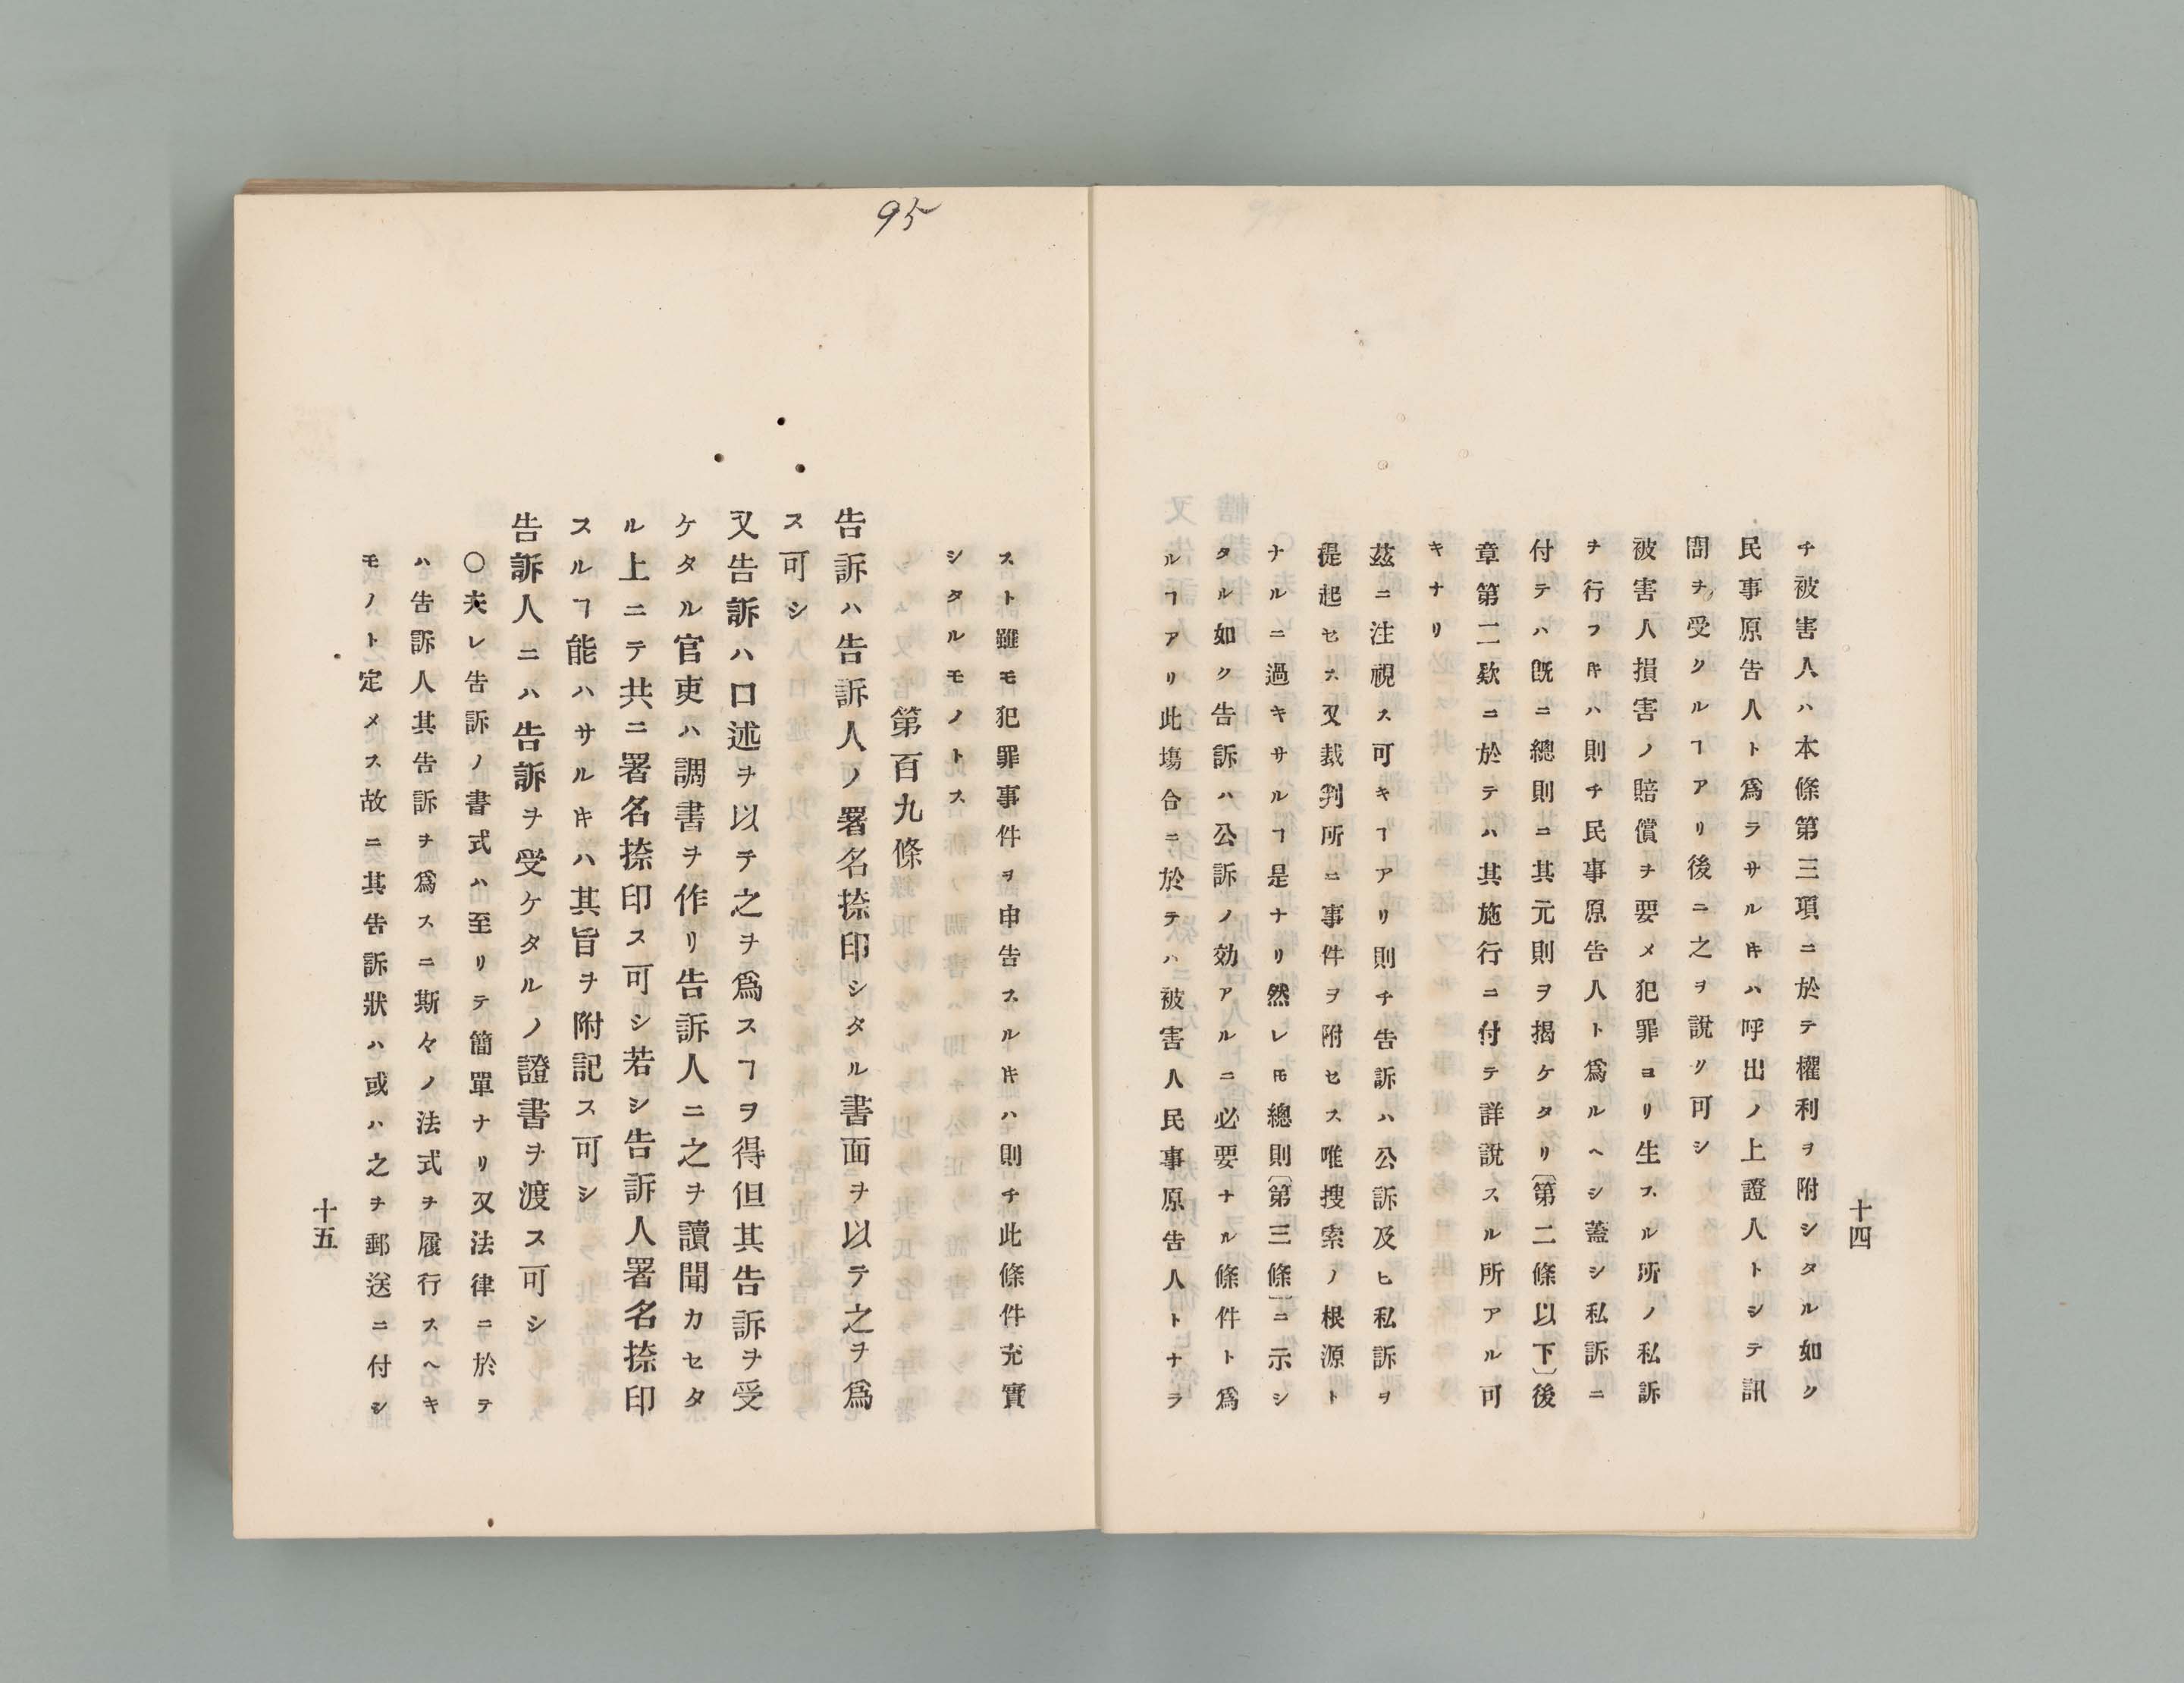 十四
チ被害人ハ本條第三項ニ於テ權利ヲ附シタル如ク
民事原告人ト爲ラサルキハ呼出ノ上證人トシテ訊
問ヲ受クルヿアリ後ニ之ヲ説ク可シ
被害人損害ノ賠償ヲ要メ犯罪ヨリ生スル所ノ私訴
ヲ行フキハ則チ民事原告人ト爲ルヘシ蓋シ私訴ニ
付テハ既ニ總則ニ其元則ヲ揭ケタリ〔第二條以下〕後
章第二欵ニ於テハ其施行ニ付テ詳説スル所アル可
キナリ
茲ニ注視ス可キヿアリ則チ告訴ハ公訴及ヒ私訴ヲ
提起セス又裁判所ニ事件ヲ附セス唯搜索ノ根源ト
ナルニ過キサルヿ是ナリ然レ𪜈總則〔第三條〕ニ示シ
タル如ク告訴ハ公訴ノ効アルニ必要ナル條件ト爲
ルヿアリ此塲合ニ於テハ被害人民事原告人トナラ
95
スト雖モ犯罪事件ヲ申告スルキハ則チ此條件充實
シタルモノトス
第百九條
告訴ハ告訴人ノ署名捺印シタル書面ヲ以テ之ヲ爲
ス可シ
又告訴ハ口述ヲ以テ之ヲ爲スヿヲ得但其告訴ヲ受
ケタル官吏ハ調書ヲ作リ告訴人ニ之ヲ讀聞カセタ
ル上ニテ共ニ署名捺印ス可シ若シ告訴人署名捺印
スルヿ能ハサルキハ其旨ヲ附記ス可シ
告訴人ニハ告訴ヲ受ケタルノ證書ヲ渡ス可シ
〇夫レ告訴ノ書式ハ至リテ簡單ナリ又法律ニ於テ
ハ告訴人其告訴ヲ爲スニ斯々ノ法式ヲ履行スヘキ
モノト定メス故ニ其告訴狀ハ或ハ之ヲ郵送ニ付シ
十五